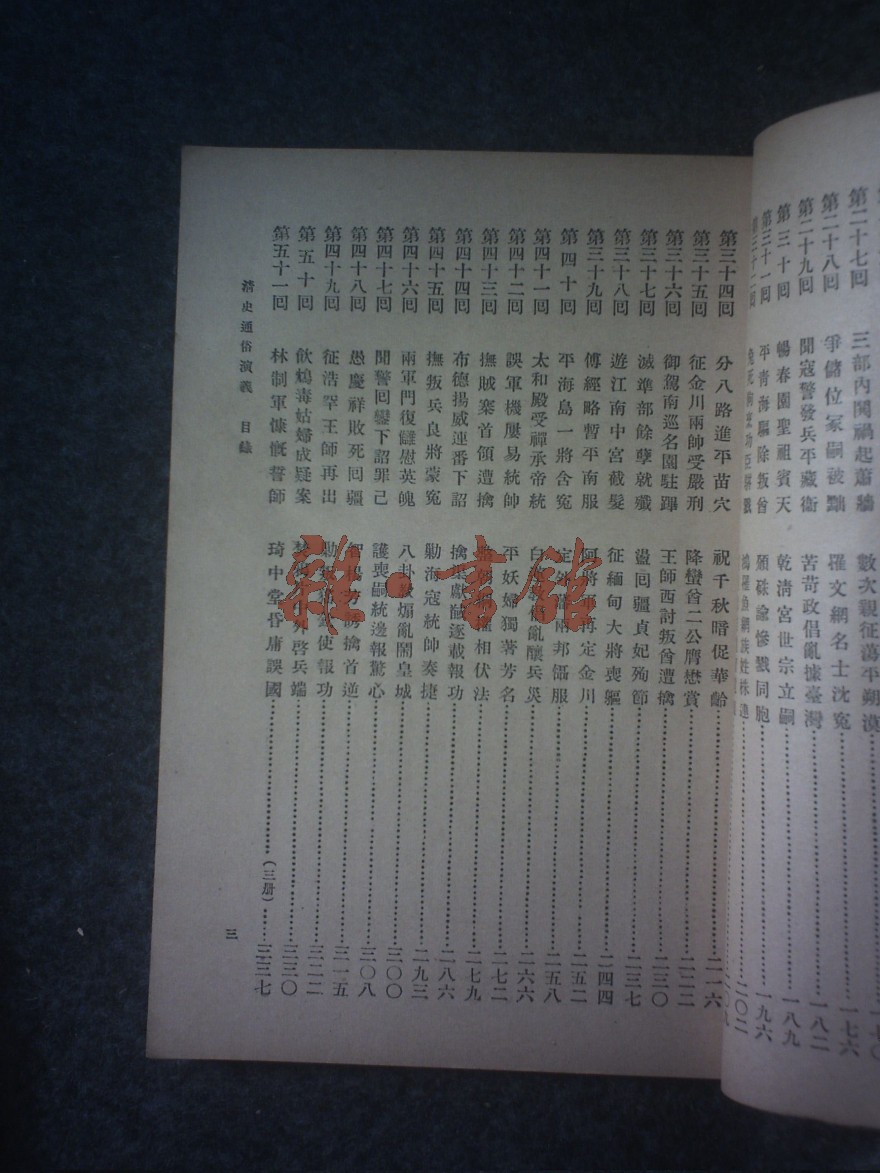 三部內鬨禍起蕭牆 數次親征蕩平朔漠
第二十八回 爭儲位冢嗣被黜 羅文網名士沈冤 一七六
第二十九回 聞寇警發兵平藏衛 苦苛政倡亂據臺灣 一八二
第三十回 暢春園聖祖賓天 乾清宮世宗立嗣 一八九
第三十一回 平青海驅除叛酋 頒硃諭慘戮同胞 一九六
二〇二
第三十四回 分八路進平苗穴 祝千秋暗促華齡 二一六
第三十五回 征金川兩帥受嚴刑 降蠻酋二公膺懋賞 二二二
第三十六回 御駕南巡名園駐蹕 王師西討叛酋遭擒 二三〇
第三十七回 滅準部餘孽就殲 盪回疆貞妃殉節 二三七
第三十八回 遊江南中宮截髮 征緬甸大將喪軀 二四四
第三十九回 傅經略暫平南服 阿將軍再定金川 二五二
第四十回 平海島一將含冤 定外藩兩邦懾服 二五八
第四十一回 太和殿受禪承帝統 白 倡亂釀兵災 二六六
第四十二回 誤軍機屢易統帥 平妖婦獨著芳名 二七二
第四十三回 撫賊寨首領遭擒 相伏法 二七九
第四十四回 布德揚威連番下詔 擒渠獻馘逐載報功 二八六
第四十五回 撫叛兵良將蒙冤 剿海寇統帥奏捷 二九三
第四十六回 兩軍門復讎慰英魄 八卦教煽亂鬧皇城 三〇〇
第四十七回 聞警回鑾下詔罪己 護喪嗣統邊報驚心 三〇八
第四十八回 愚慶祥敗死回疆 智楊芳誘擒首逆 三一五
第四十九回 征浩罕王師再出 剿 使報功 三二二
第五十回 飲鴆毒姑婦成疑案 啓兵端 三三〇
第五十一回 林制軍慷慨誓師 琦中堂昏庸誤國 (三册) 三三七
清史通俗演義 目錄
三
雜·書館